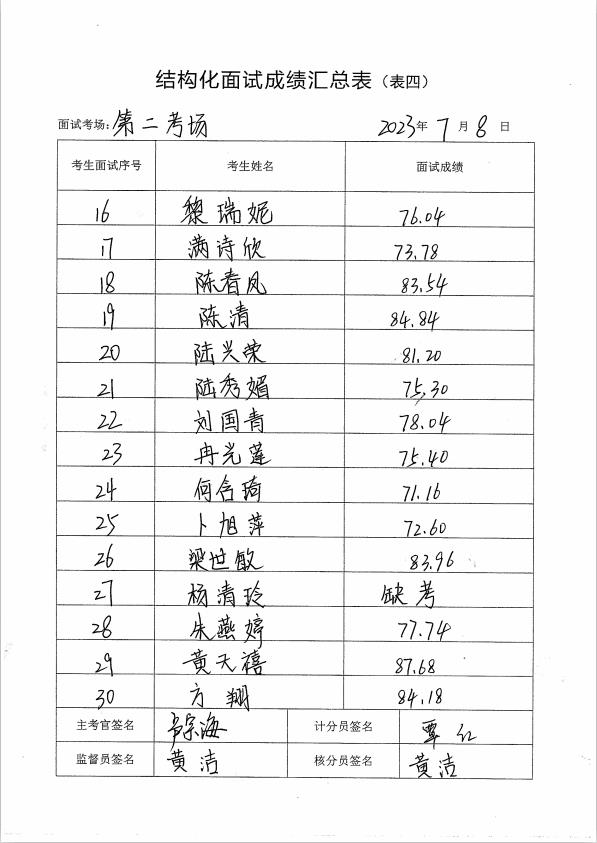 结构化面试成绩汇总表（表四）
面试考场：第二考场 2023年7月8日
考生面试序号 考生姓名 面试成绩
16 黎瑞妮 76.04
17 满诗欣 73.78
18 陈春凤 83.54
19 陈清 84.84
20 陆兴荣 81.20
21 陆秀媚 75.30
22 刘国青 78.04
23 冉光莲 75.40
24 何含琦 71.16
25 卜旭萍 72.60
26 梁世敏 83.96
27 杨清玲 缺考
28 朱燕婷 77.74
29 黄天禧 87.68
30 方翔 84.18
主考官签名 宗海 计分员签名 覃红
监督员签名 黄洁 核分员签名 黄洁